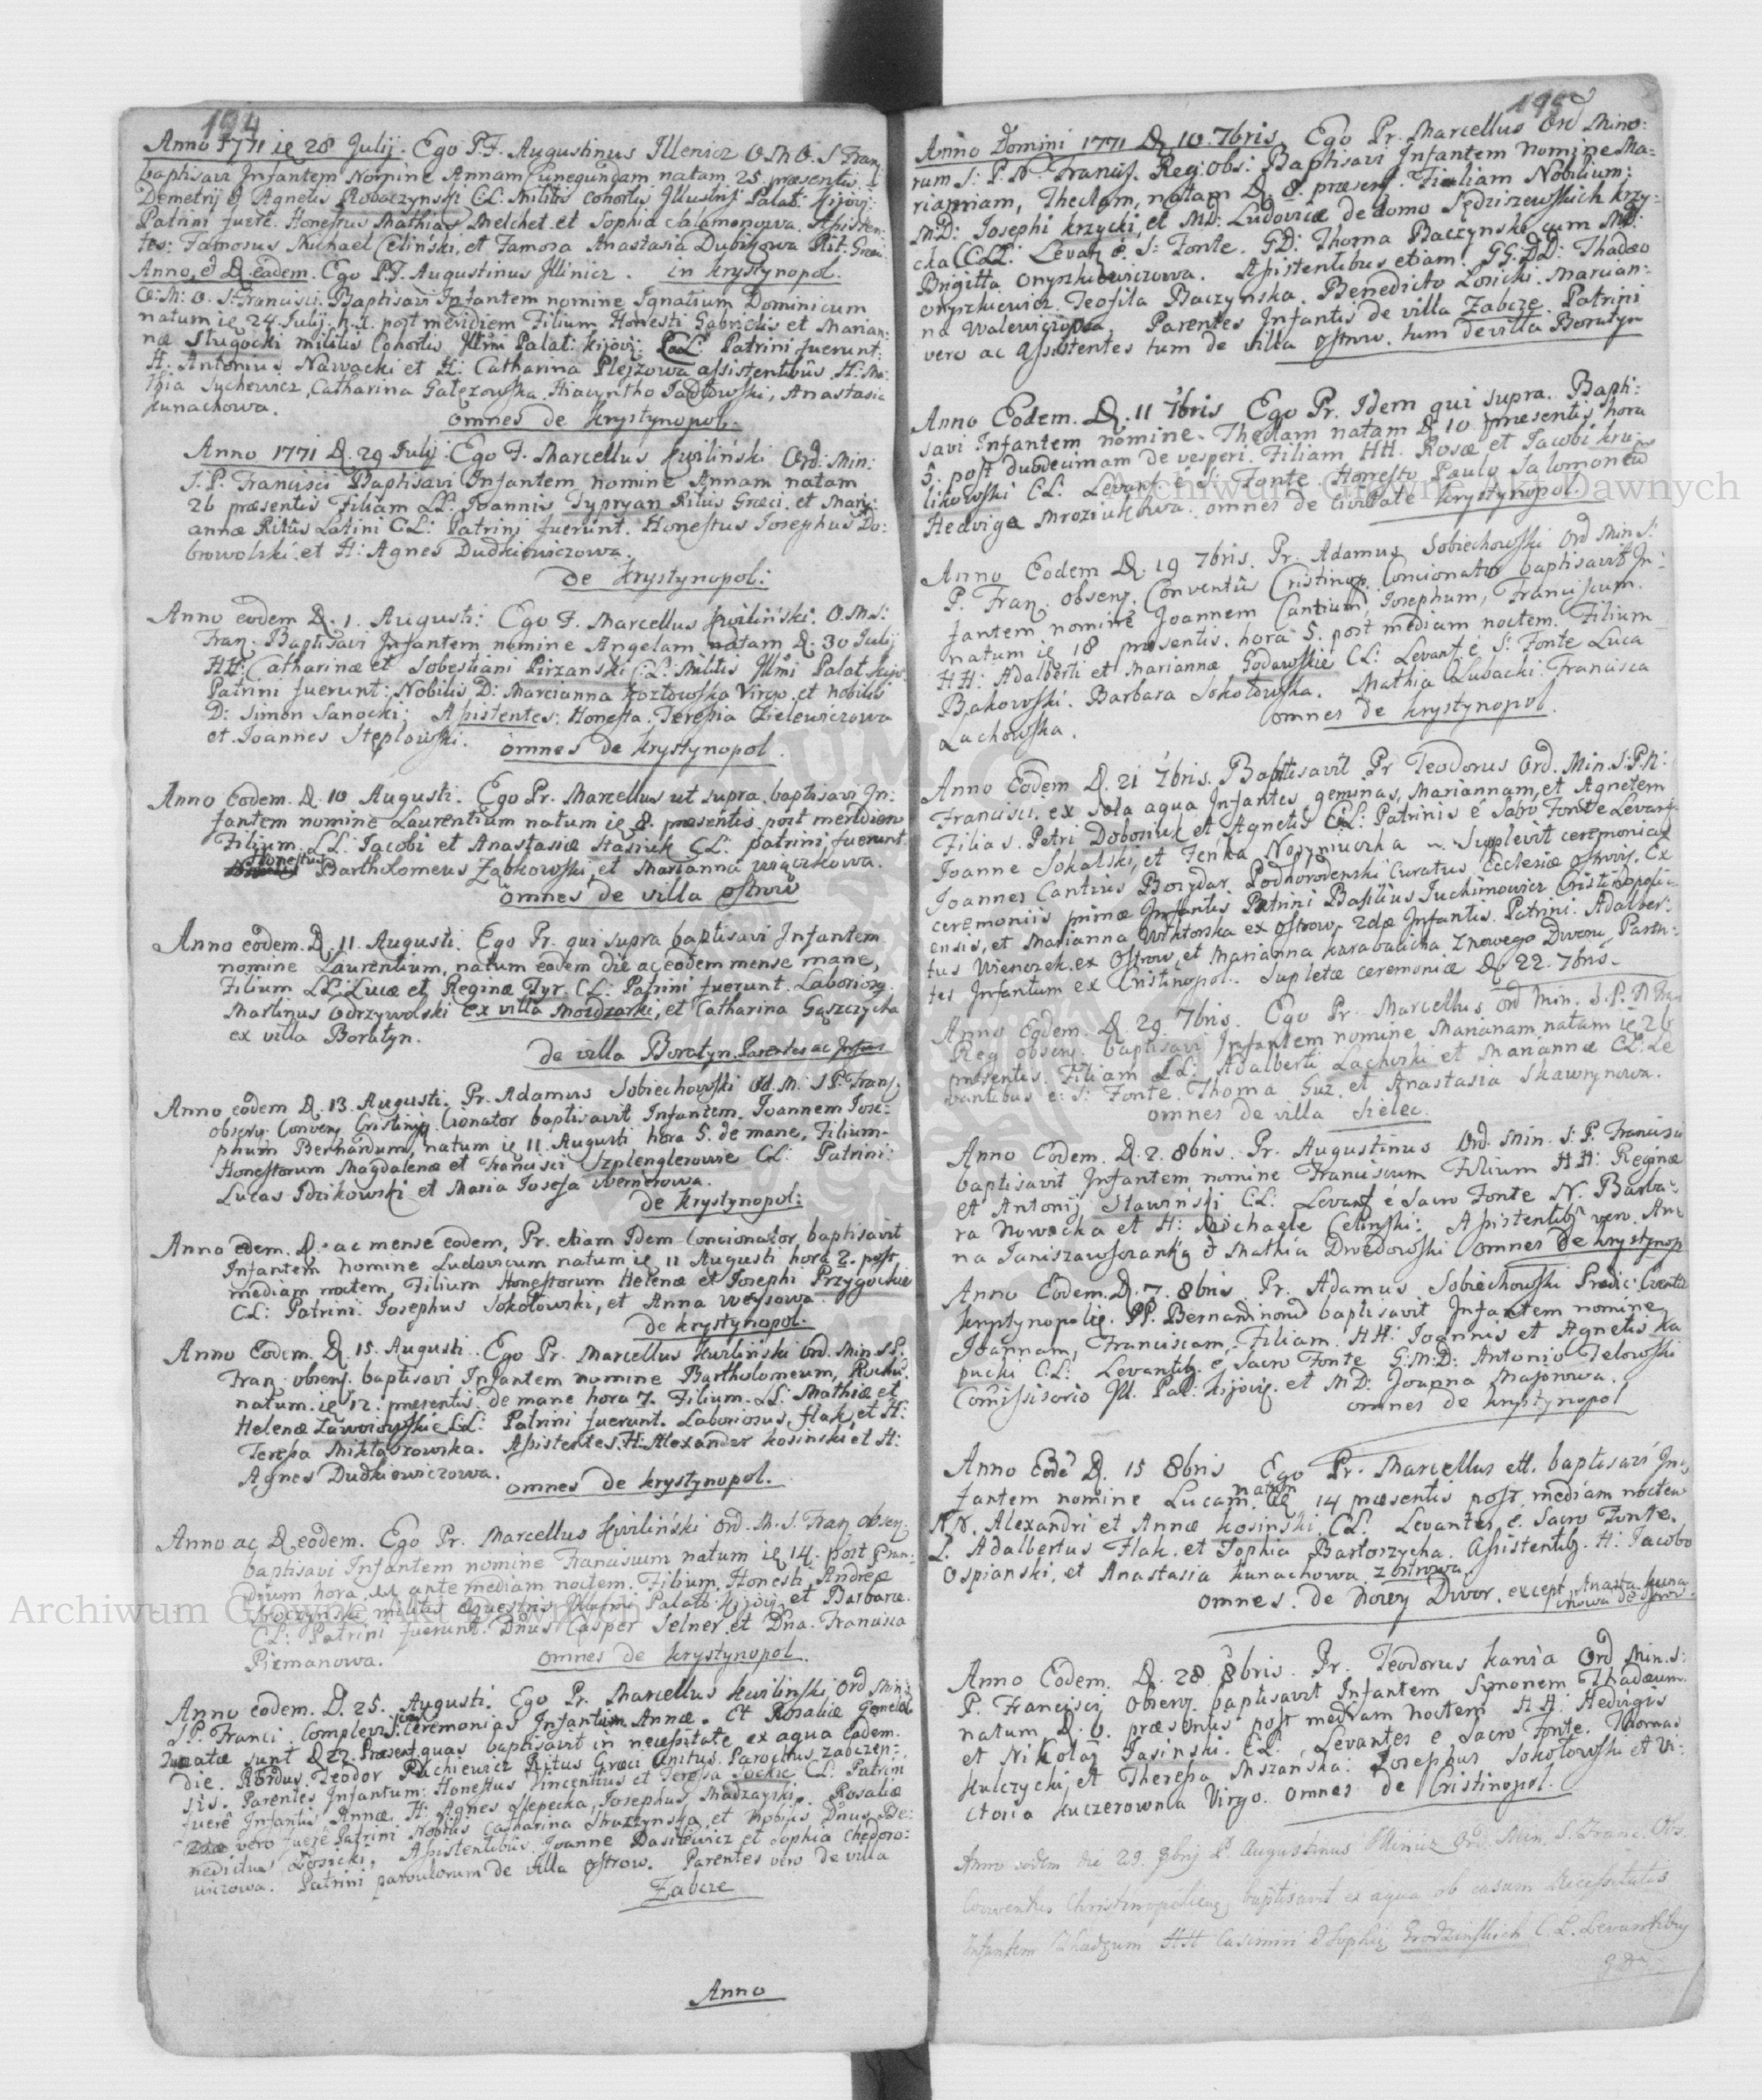 194
Anno 1771 ie 28 Julij. Ego P.F. Augustinus Illenicz O.M.O. S Fran:
baptisavi Infantem Nomine Annam Cunegundam natam 25 præsentis
Demetrij et Agnetis Robaczynski CL: Militis cohortis Illustris: Palat: Kijovi:
Patrini fuere. Honestus Mathias Melchet et Sophia Salamonowa. Assisten:
tes: Famosus Michael Celinski, et Famosa Anastasia Dubikowa Rit: Græci
Anno, et D eadem. Ego P.F. Augustinus Illinicz. in Krystynopol.
O: M: O. S Francisci. Baptisavi Infantem nomine Ignatium Dominicum
natum ie 24 Julij post meridiem Filium Honesti Gabrielis et Marian:
næ Sługocki militis Cohortis Illmi Palat: Kijovi: CL: Patrini fuerunt:
H: Antonius Nawacki et H: Catharina Plejzowa assistentibus H: Ma:
thia Sychewicz, Catharina Gałęzowska Hiacyntho Jadłowski, Anastasia
Kunachowa.
omnes de Krystynopol.
Anno 1771 D. 29 Julij. Ego F. Marcellus Kwiliński Ord: Min:
S. P. Francisci Baptisavi Infantem nomine Annam natam
26 præsentis Filiam LL. Joannis Typryan Ritus Græci. et Mary:
annæ Ritûs Latini CL: Patrini fuerunt. Honestus Josephus Do:
browolski et H: Agnes Dudkiewiczowa.
de Krystynopol:
Anno eodem D. 1. Augusti: Ego F. Marcellus Kwiliński. O.M.S:
Fran. Baptisavi Infantem nomine Angelam natam D: 30 Julij
HH: Catharinæ et Sobestiani Pirzanski CL: Militis Illmi Palat Kijo:
Patrini fuerunt: Nobilis D: Marcianna Kozłowska Virgo. et nobilis
D: Simon Sanocki; Assistentes: Honesta. Teressia Zielewiczowa
et Joannes Steplowski. omnes de Krystynopol.
Anno Eodem. D. 10 Augusti. Ego Pr. Marcellus ut supra. baptisavi In:
fantem nomine Laurentium natum ie 8. præsentis post meridiem
Filium. LL: Jacobi et Anastasiæ Stasiuk CL: patrini fuerunt
Honestus Bartholomeus Ząbkowski, et Marianna Wiączkowa.
omnes de villa Ostrow
Anno eodem. D. 11. Augusti. Ego Pr. qui supra baptisavi Infantem
nomine Laurentium, natum eodem die ac eodem mense mane,
Filium LL: Lucæ et Reginæ Tyr. CL: Patrini fuerunt. Laborios
Martinus Odrzywolski ex villa Mozdzarki, et Catharina Gąszczycka
ex villa Boratyn.
de villa Boratyn. Parentes ac Infans
Anno eodem D. 13. Augusti. Pr. Adamus Sobiechowski Od. M. S P. Fran.
Observ. Conven. Cristinop. Cionator baptisavit Infantem, Joannem Jose:
phum Bernardum, natum ie 11 Augusti hora 5. de mane, Filium
Honestorum Magdalenæ et Francisci Szplenglerowie CL: Patrini:
Lucas Idzikowski et Maria Josefa Wernerowa.
de Krystynopol:
Anno edem. D. ac mense eodem, Pr. etiam Idem Concionator, baptisavit
Infantem nomine Ludovicum natum ie 11 Augusti hora 2. post
mediam noctem, Filium Honestorum Helenæ et Josephi Przygockie
CL: Patrini: Josephus Sokołowski, et Anna Weysowa.
de Krystynopol.
Anno Eodem. D. 15. Augusti. Ego Pr. Marcellus Kwiliński Ord. Min. S P.
Fran. observ. baptisavi Infantem nomine Bartholomeum, Rochu:
natum. ie 12. præsentis. de mane hora 7. Filium. LL. Mathiæ et
Helenæ Zaworowskie CL: Patrini fuerunt. Laboriosus, Flak, et H:
Teressa Mikłaszowska. Assistentes. H: Alexander Kosinski et H:
Agnes Dudkiewiczowa.
omnes de Krystynopol.
Anno ac D eodem. Ego Pr. Marcellus Kwiliński Ord. M. S. Fran. observ.
baptisavi Infantem nomine Franciscum natum ie 14. post pran:
dium hora ante mediam noctem. Filium. Honesti Andreæ
militis Equestris Palat: Kijov: et Barbaræ.
CL: Patrini fuerunt. Dnus Casper Selner, et Dna. Francisca
Pizmanowa. omnes de Krystynopol.
Anno eodem. D. 25. Augusti. Ego Pr. Marcellus Kwiliński Ord Min:
S P. Franci. complevi Ceremonias Infantum. Annæ. et Rosaliæ Gemelæ
natæ sunt D 22. Præsent. quas baptisavit in necessitate ex aqua eadem
die. Rdus. Teodor Puchiewicz Ritus Græci Unitus. Parochus Zabczen:
sis. Parentes Infantum: Honestus Vincentius et Teressa Sockie CL: Patrini
fuere Infantis Annæ. H: Agnes Slepecka, Josephus Madzayski. Rosaliæ
vero fuere Patrini Nobilis Catharina Struzynska, et Nobilis Dnus Be:
nedictus Łosicki, Assistentibus Joanne Dasiewicz et Sophia Chedoro:
wiczowa. Patrini parvulorum de villa Ostrow. Parentes vero de villa
Zabcze
Anno
195
Anno Domini 1771 D. 10. 7bris. Ego Pr. Marcellus Ord Mino:
rum S: P. N. Francis. Reg: Obs: Baptisavi Infantem nomine Ma:
riannam, Theclam, natam D. 8. præsen. Filiam Nobilium:
MD: Josephi Krzycki, et MD: Ludovicæ de domo Sędziszewskich Krzy:
cka CLL: Levan é S: Fonte. GD: Thoma Baczynski cum MD:
Brigitta Onyszkiewiczowa. Assistentibus etiam. GG: DD: Thadeo
Onyszkiewicz. Teofila Baczynska. Benedicto Łosicki. Marian:
na Walewiczowa, Parentes Infantis de villa Zabcze. Patrini
vero ac Assistentes tum de villa Ostrow. tum de villa Boratyn
Anno Eodem. D. 11 7bris Ego Pr. Idem qui supra. Bapti:
savi Infantem nomine. Theclam natam D 10 præsentis hora
5. post duodecimam de vesperi. Filiam HH. Rosæ et Jacobi Kru:
likowski CL: Levant é S: Fonte Honesto Paulo Salomoneu
Hedviga Mroziukowa. omnes de Civitate Krystynopol.
Anno Eodem D. 19 7bris. Pr. Adamus Sobiechowski Ord Min S:
P. Fran. Observ. Conventûs Cristinop. Concionator baptisavit In:
fantem nomine Joannem Cantium, Josephum, Franciscum.
natum ie 18 præsentis. hora 5. post mediam noctem. Filium
HH: Adalberti et Mariannæ Godawskie CL: Levant é S: Fonte Luca
Bąkowski. Barbara Sokołowska. Mathia Lubacki. Francisca
Lachowska. omnes de Krystynopol.
Anno Eodem D. 21 7bris. Baptisavit Pr Teodorus Ord. Min. S: P. N:
Francisci. ex sola aqua Infantes geminas, Mariannam, et Agnetem
Filias. Petri Doboniuk et Agnetis CL: Patrinis é Sacro Fonte Levant
Joanne Sokalski, et Fenka Nosyniucka. Supplevit ceremonias
Joannes Cantius Bozydar Podhorodenski Curatus Ecclesiæ Ostrov. Ex
ceremoniis primæ Infantis Patrini Basilius Juchimowicz Cristinopoli:
ensis, et Marianna Wiktorska ex Ostrow, 2dæ Infantis. Patrini. Adalber:
tus Wienczek ex Ostrow, et Marianna Karabanicka Znowego Dworu, Paren:
tes Infantum ex Cristinopol. Supletæ ceremoniæ D. 22. 7bris.
Anno Eodem. D. 29. 7bris. Ego Pr. Marcellus Ord Min. S. P. N Fran
Reg observ. baptisavi Infantem nomine Mariannam, natam ie 26
præsentis. Filiam LL: Adalberti Lachocki et Mariannæ CL: Le
vantibus é: S: Fonte. Thoma Guz. et Anastasia Skawrynowa.
omnes de villa Sielec.
Anno Eodem. D. 2. 8bris. Pr. Augustinus Ord. Min. S. P. Francisci
baptisavit Infantem nomine Franciscum Filium HH: Reginæ
et Antonij Sławiński CL: Levant é Sacro Fonte N. Barba:
ra Nowacka et H: Michaele Celinski: Assistentib vero. An:
na Janiszewszczanką et Mathia Drozdowski omnes de Krystynop
Anno Eodem. D. 7. 8bris Pr. Adamus Sobiechowski Prædic: Conventu
Krystynopolie. PP. Bernardinorum baptisavit Infantem nomine
Joannam, Franciscam, Filiam. HH: Joannis et Agnetis Ka
pucki CL: Levantib. é Sacro Fonte G: M: D: Antonio Jelowski
Comissisorio Ill. Pal: Kijovie. et MD: Joanna Majorowa.
omnes de Krystynopol
Anno Eode D. 15 8bris Ego Pr. Marcellus ett. baptisavi In:
fantem nomine Lucam natum ie 14 præsentis post mediam noctem
N.N. Alexandri et Annæ Kosinski CL: Levantes é. Sacro Fonte.
L. Adalbertus Flak. et Sophia Bartoszycha. Assistentib. H. Jacobo
Ospianski, et Anastasia Kunachowa z Ostrowa.
omnes. de Nowy Dwor. except Anasta Kuna
chowa de Ostrow.
Anno Eodem. D. 28 8bris. Pr. Teodorus Kania Ord Min. S:
P. Francisci Observ. baptisavit Infantem Symonem Thadæum
natum D. præsentis post mediam noctem HH: Hedvigis
et Nikolai Jasinski. CL. Levantes é Sacro Fonte. Thomas
Kulczycki, et Theressa Mszanska: Josephus Sokołowski et Vi:
ctoria Kuczerownia Virgo. omnes de Cristinopol.
Anno eodem die 29. 8bris P. Augustinus Illinicz Ord. Min. S. Franc. Obs
Conventus Christinopoliens baptisavit ex aqua ob casum Necessitatis
Infantem Thadæum HH Casimiri et Sophiæ Grodzinskich C. L. Levantibus